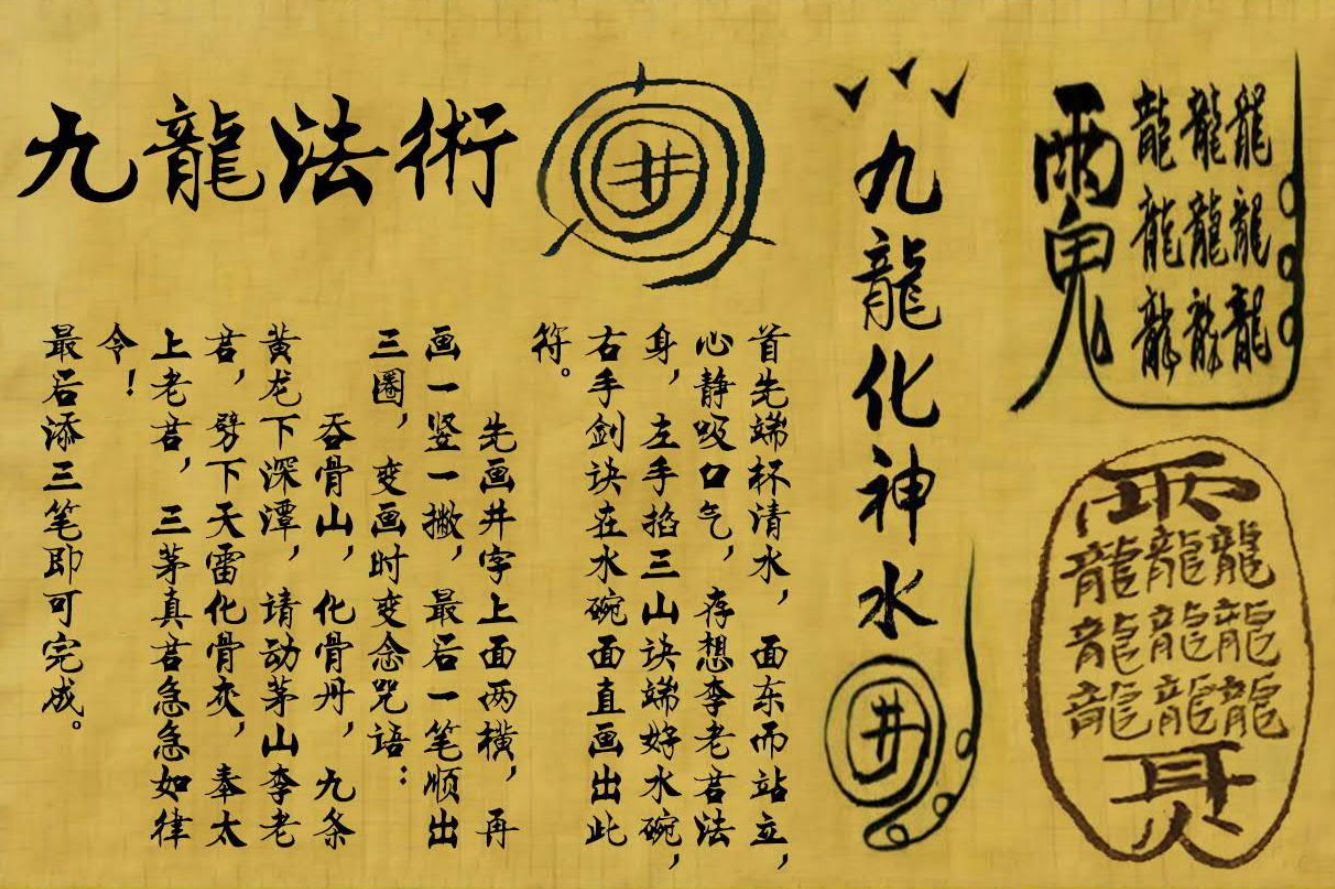 九龍法術
井
首先端杯清水，面东而站立，
心静吸口气，存想李老君法
身，左手掐三山诀端好水碗，
右手剑诀在水碗面直画出此
符。
先画井字上面两横，再
画一竖一撇，最后一笔顺出
三圈，变画时变念咒语：
吞骨山，化骨丹，九条
黄龙下深潭，请动茅山李老
君，劈下天雷化骨灰，奉太
上老君，三茅真君急急如律
令！
最后添三笔即可完成。
九龍化神水井
雨鬼
龍龍龍
龍龍龍
龍龍龍
雨
龍龍龍
龍龍龍
龍龍龍
耳火